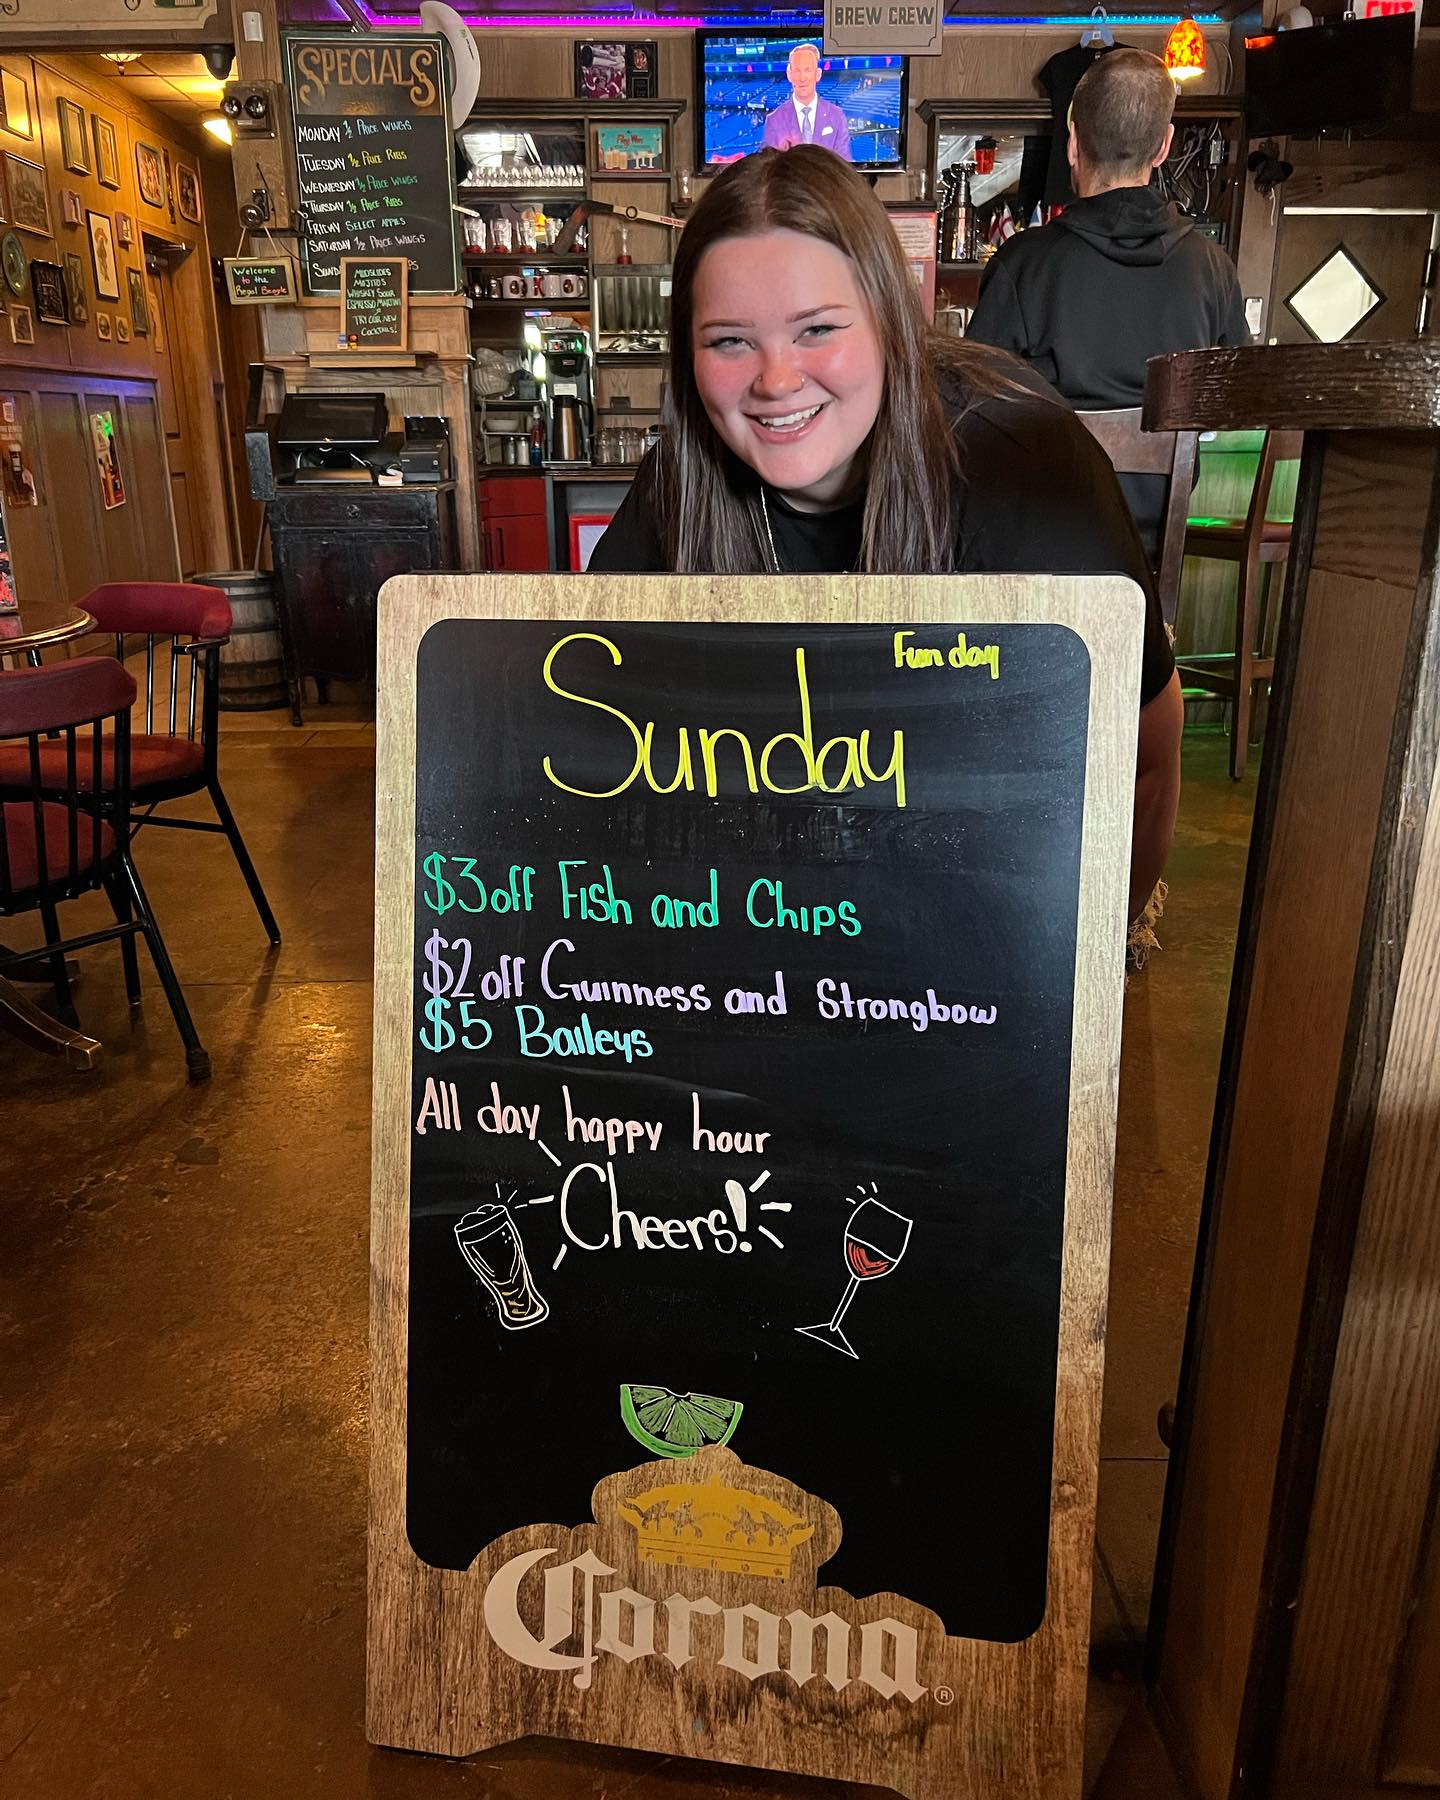 BREW CREW
EXIT
SPECIALS
MONDAY ½ PRICE WINGS
TUESDAY ½ PRICE RIBS
WEDNESDAY ½ PRICE WINGS
THURSDAY ½ PRICE RIBS
FRIDAY SELECT APPIES
SATURDAY ½ PRICE WINGS
Welcome
to the
Regal Beagle
MUDSLIDES
MOJITOS
WHISKEY SOUR
ESPRESSO MARTINI
TRY OUR NEW
COCKTAILS!
Sunday Funday
$3 off Fish and Chips
$2 off Guinness and Strongbow
$5 Baileys
All day happy hour
Cheers!
Corona ®